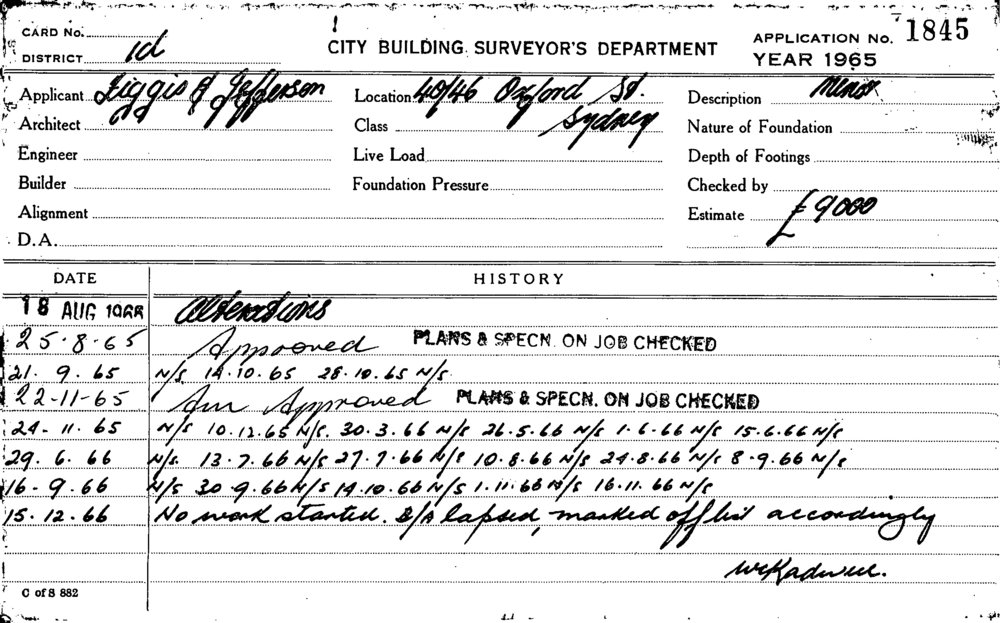 CARD No.
DISTRICT 1d
CITY BUILDING SURVEYOR'S DEPARTMENT
APPLICATION No. 1845
YEAR 1965
Applicant Figgis & Jefferson
Location 40/46 Oxford St.
Sydney
Description Minor
Architect
Class
Nature of Foundation
Engineer
Live Load
Depth of Footings
Builder
Foundation Pressure
Checked by
Alignment
Estimate £9000
D.A.
DATE HISTORY
18 AUG 1965 Alterations
25.8.65 Approved PLANS & SPECN. ON JOB CHECKED
21. 9. 65 N/S. 14.10.65 28.10.65 N/S.
22-11-65 Am Approved PLANS & SPECN. ON JOB CHECKED
24. 11. 65 N/S 10.12.65 N/S. 30.3.66 N/S 26.5.66 N/S 1.6.66 N/S 15.6.66 N/S
29. 6. 66 N/S. 13.7.66 N/S 27.7.66 N/S 10.8.66 N/S 24.8.66 N/S 8.9.66 N/S
16. 9. 66 N/S 30.9.66 N/S 14.10.66 N/S 1.11.66 N/S 16.11.66 N/S
15. 12. 66 No work started. B/A lapsed, marked off list accordingly
C of S 882